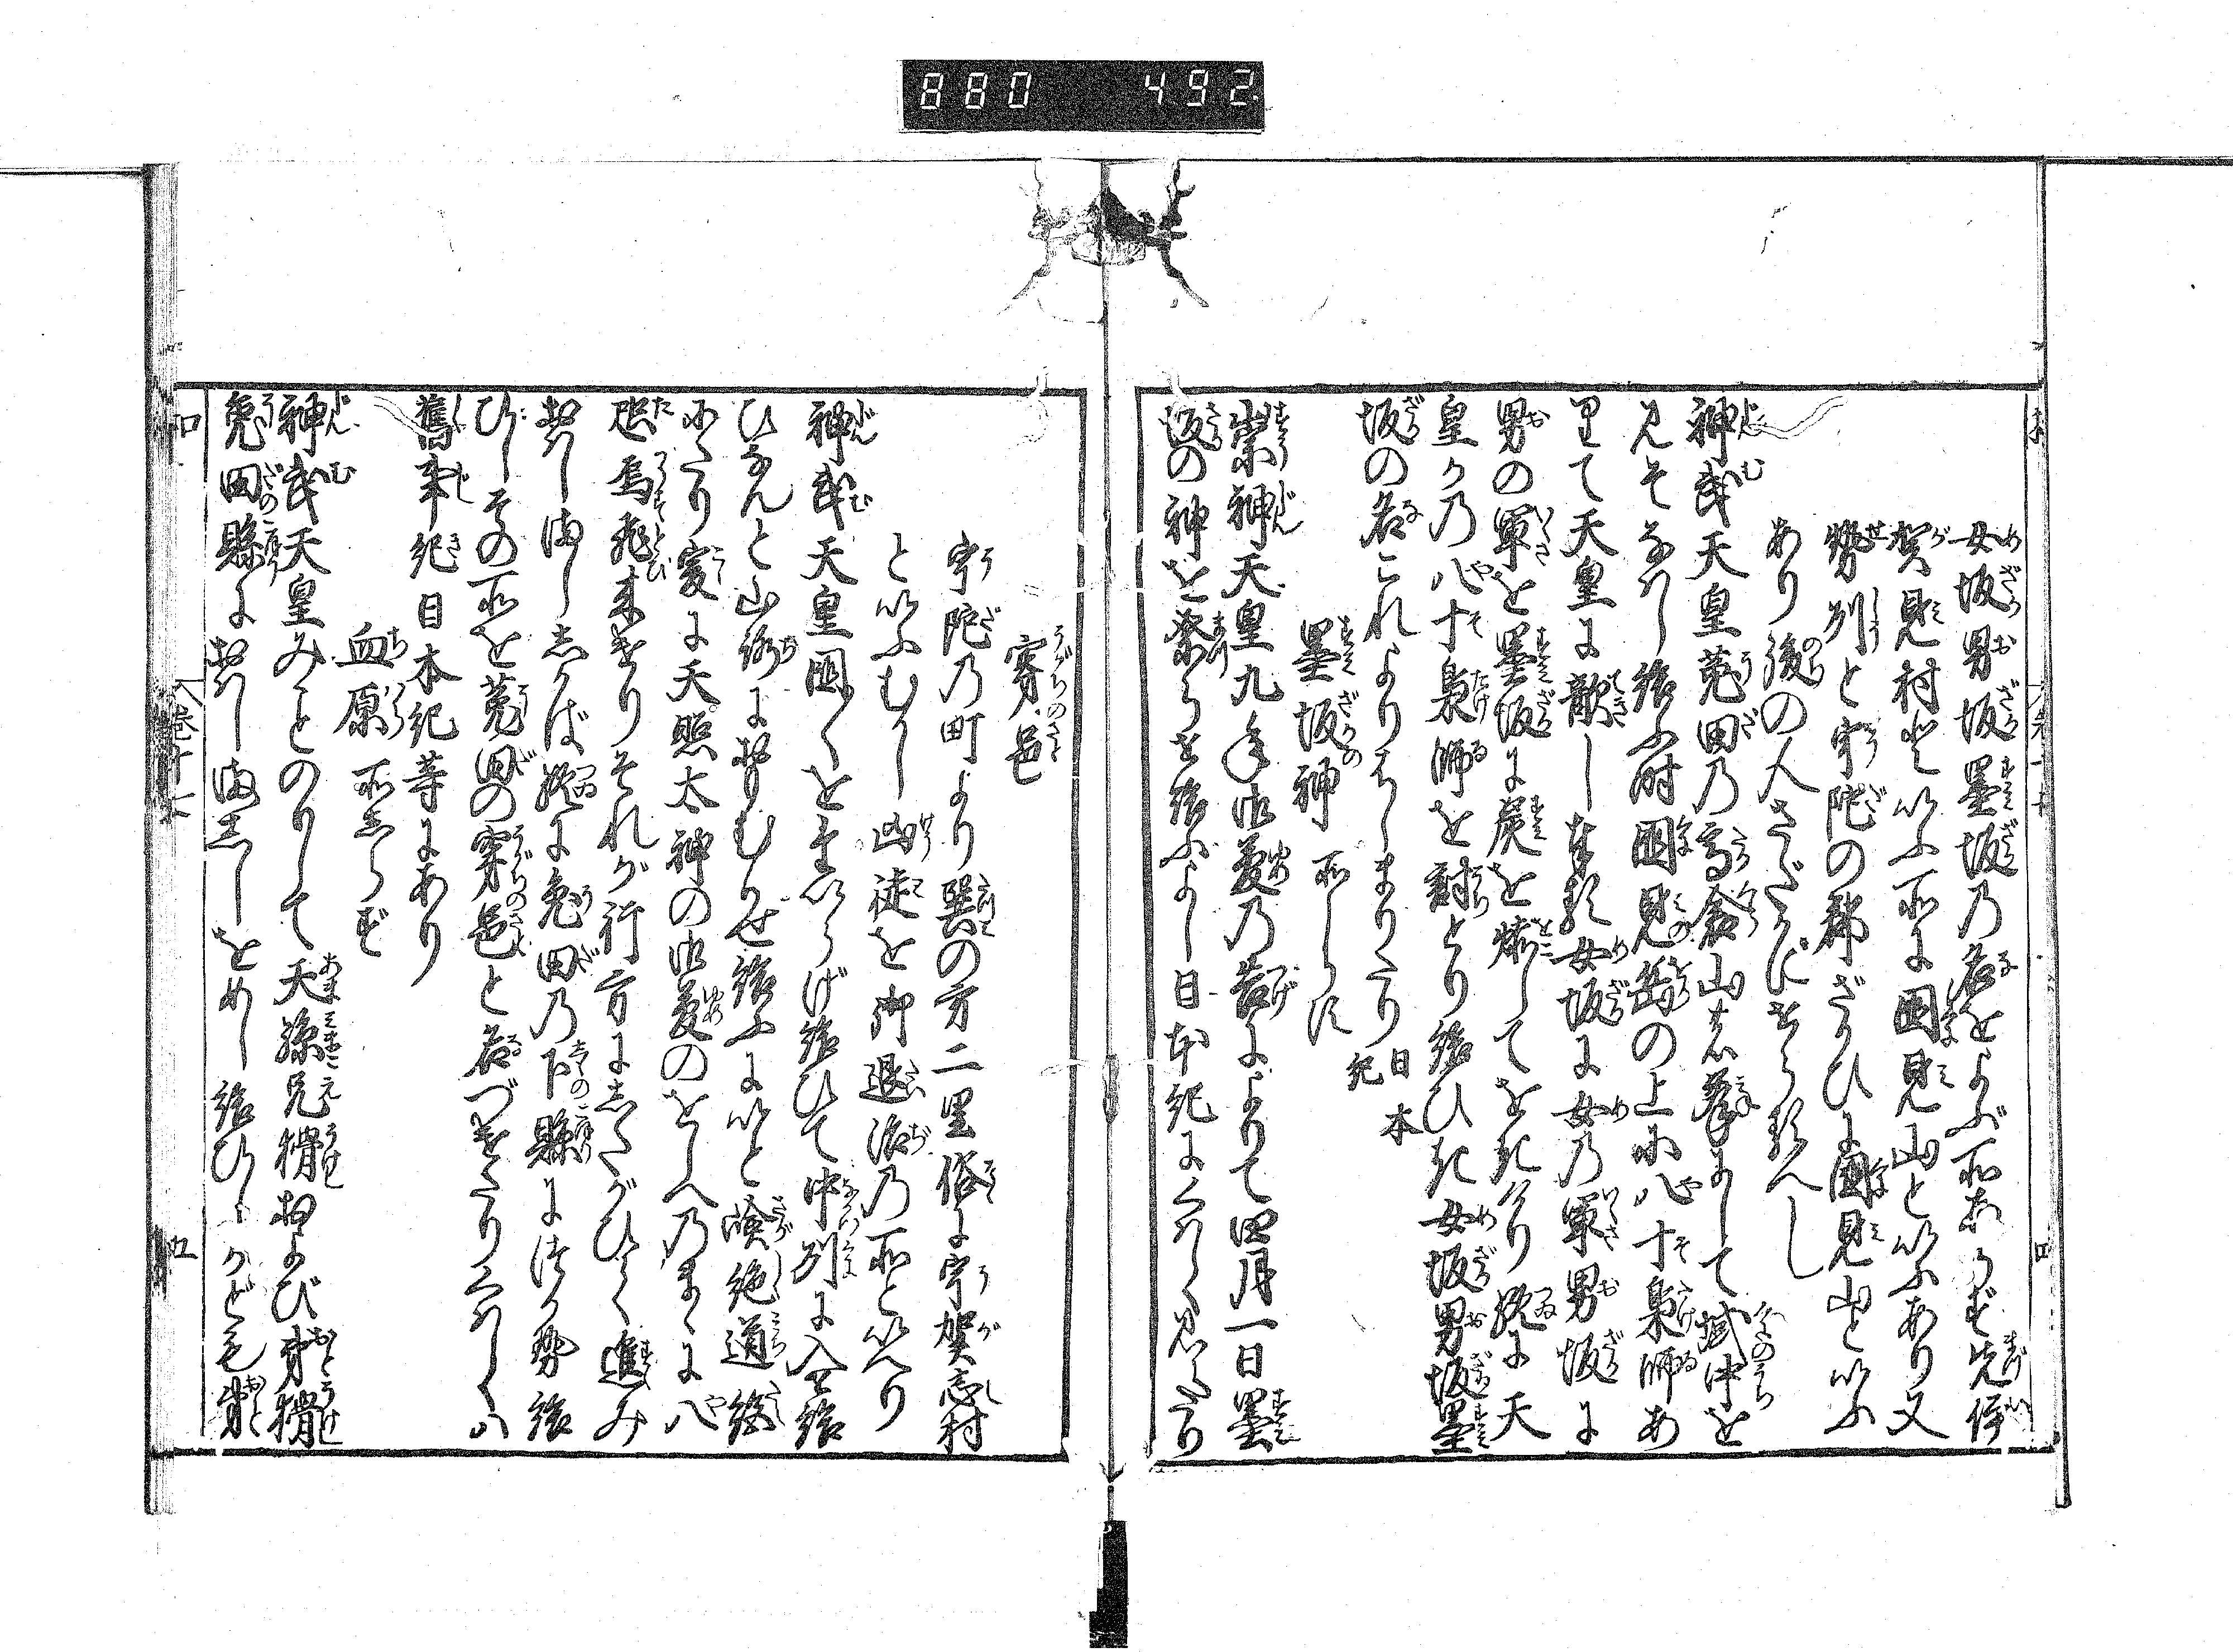 880 492
女坂男坂墨坂乃名をよぶ所あらず先伊
賀見村といふ所に国見山といふあり又
勢州と宇陀の郡ざかひに国見山といふ
あり後の人さだかにせらるべし
神武天皇菟田乃高倉山の峯にして域中を
みそなはし給ふ時国見岳の上に八十梟帥あ
りて天皇に敵し奉る女坂に女乃軍男坂に
男の軍を墨坂に炭を燃してをきけり終に天
皇かの八十梟帥を討とり給ひき女坂男坂墨
坂の名これよりはじまりたり日本紀
墨坂神 所しらず
崇神天皇九年御夢乃告によりて四月一日墨
坂の神を祭らせ給ふよし日本紀にくはしく見えたり
穿邑
宇陀乃町より巽の方二里俗に宇賀志村
といふむかし凶徒を御退治乃所といへり
神武天皇国〳〵をたいらげ給ひて中州に入せ給
ひなんと山路におもむかせ給ふにいと嶮絶道絡
にたり爰に天照太神の御夢のをしへのまゝに八
咫烏飛来けりそれが行方にしたがひて進み
おはしましゝかば終に菟田乃下縣につかせ給
ひしその所を菟田の穿邑と名づけたりくはしくハ
舊事紀日本紀等にあり
血原 所しらず
神武天皇みことのりして天孫兄猾および弟猾
菟田縣におはしましゝをめし給ひしかども弟
和 八巻十七 五